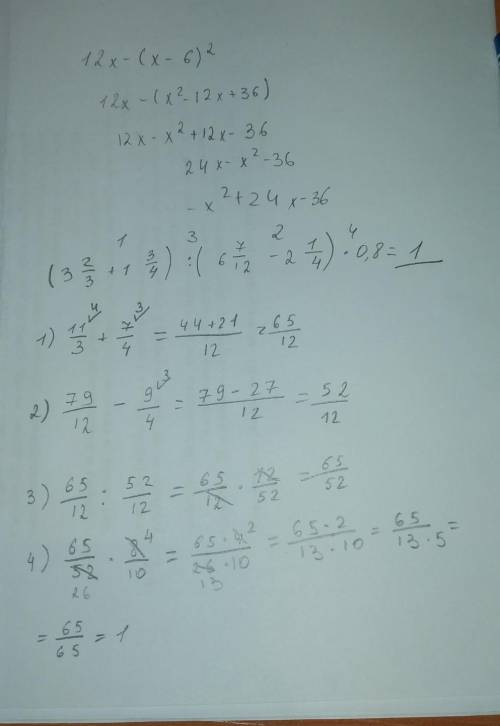 12x - (x - 6)²
12x - (x² - 12x + 36)
12x - x² + 12x - 36
24x - x² - 36
- x² + 24x - 36
1 3 2 4
(3 2/3 + 1 3/4) : (6 7/12 - 2 1/4) · 0,8 = 1
1) 11/3 ⁴ + 7/4 ³ = 44 + 21/12 = 65/12
2) 79/12 - 9/4 ³ = 79 - 27/12 = 52/12
3) 65/12 : 52/12 = 65/12 · 12/52 = 65/52
4) 65/52 26 · 8 4/10 = 65 · 4 2/26 13 · 10 = 65 · 2/13 · 10 = 65/13 · 5 =
= 65/65 = 1